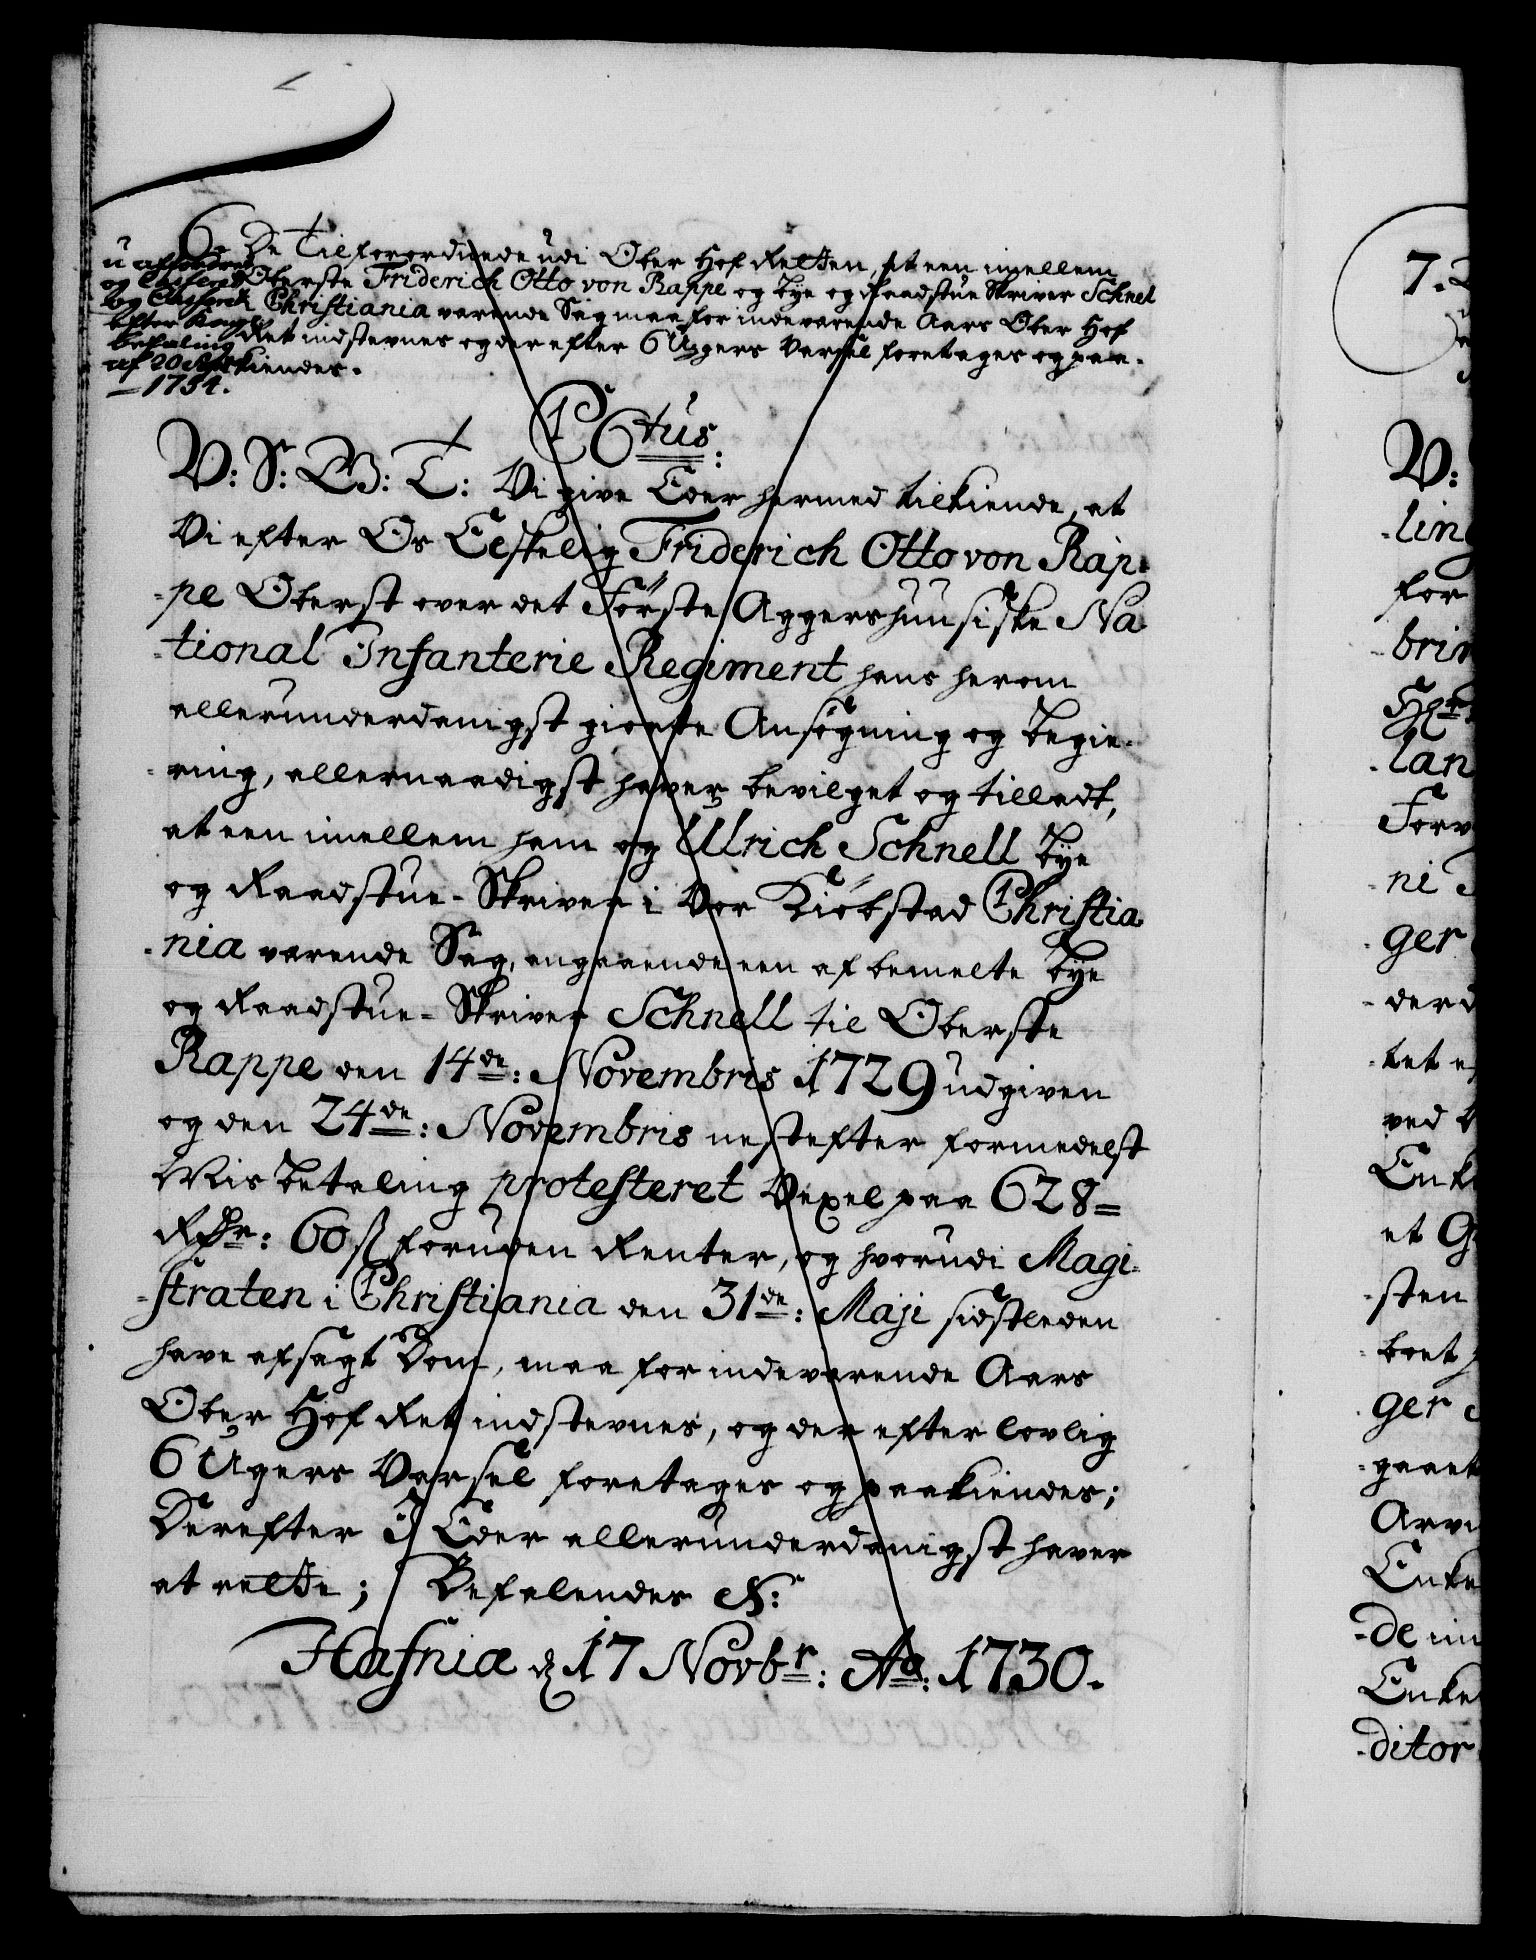 6. De Tilforordnede udi Ober Hof Retten, at een imellem
Oberste Friderich Otto von Rappe og Bye og Raadstue Skriver Schnel
i Christiania værende Sag maa for indeværende Aars Ober Hof
Ret indstevnes og der efter 6 Ugers Varsel foretages og paa-
kiendes.
u afhendet
og Casseret
og Casseret
efter Kong:
befaling
af 20 Apr
1734.
PCtus:
V: S: G: T: Vi give Eder hermed tilkiende, at
Vi efter Os Elskelig Friderich Otto von Rap-
-pe Oberst over det Förste Aggershuusiske Na
-tional Infanterie Regiment hans herom
allerunderdanigst giorte Ansögning og begie-
-ring, allernaadigst haver bevilget og tilladt,
at een imellem ham og Ulrich Schnell Bye
og Raadstue-Skriver i Vor Kiöbstad Christia
-nia værende Sag, angaaende een af bemelte Bye
og Raadstue-Skriver Schnell til Oberste
Rappe den 14de: Novembris 1729 udgiven
og den 24de: Novembris nestefter formedelst
Mis betaling protesteret Vexel paa 628=
Rdr: 60 ß foruden Renter, og hvorudi Magi-
-straten i Christiania den 31de: Maji sidstleden
have afsagt Dom, maa for indeværende Aars
Ober Hof Ret indstevnes, og der efter lovlig
6 Ugers Varsel foretages og paakiendes;
Derefter I Eder allerunderdanigst haver
at rette; Befalendes &:
Hafniæ d 17 Novbr: Ao: 1730.
7.
V:
ling
for
-brin
Hr
-lan
Forv
-ni
-ger
-derd
-tet
ved
Enke
et G
-sten
-bret
ger
-gaaet
Arv
Enke
-de im
Enke
-ditor